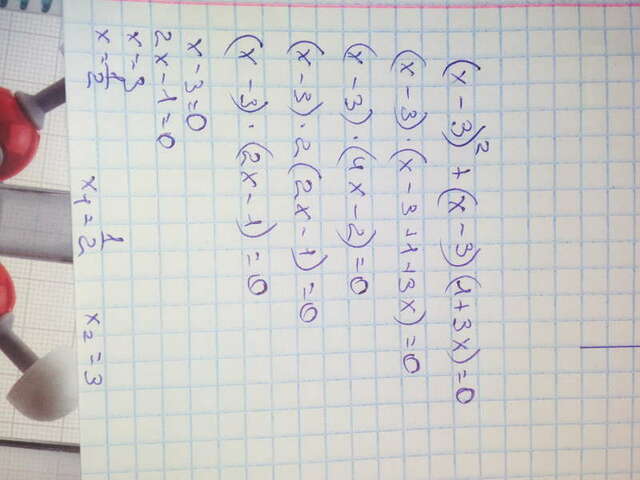 (x - 3)² + (x - 3)(1 + 3x) = 0
(x - 3) · (x - 3 + 1 + 3x) = 0
(x - 3) · (4x - 2) = 0
(x - 3) · 2(2x - 1) = 0
(x - 3) · (2x - 1) = 0
x - 3 = 0
2x - 1 = 0
x = 3
x = 1/2 x₁ = 1/2 x₂ = 3